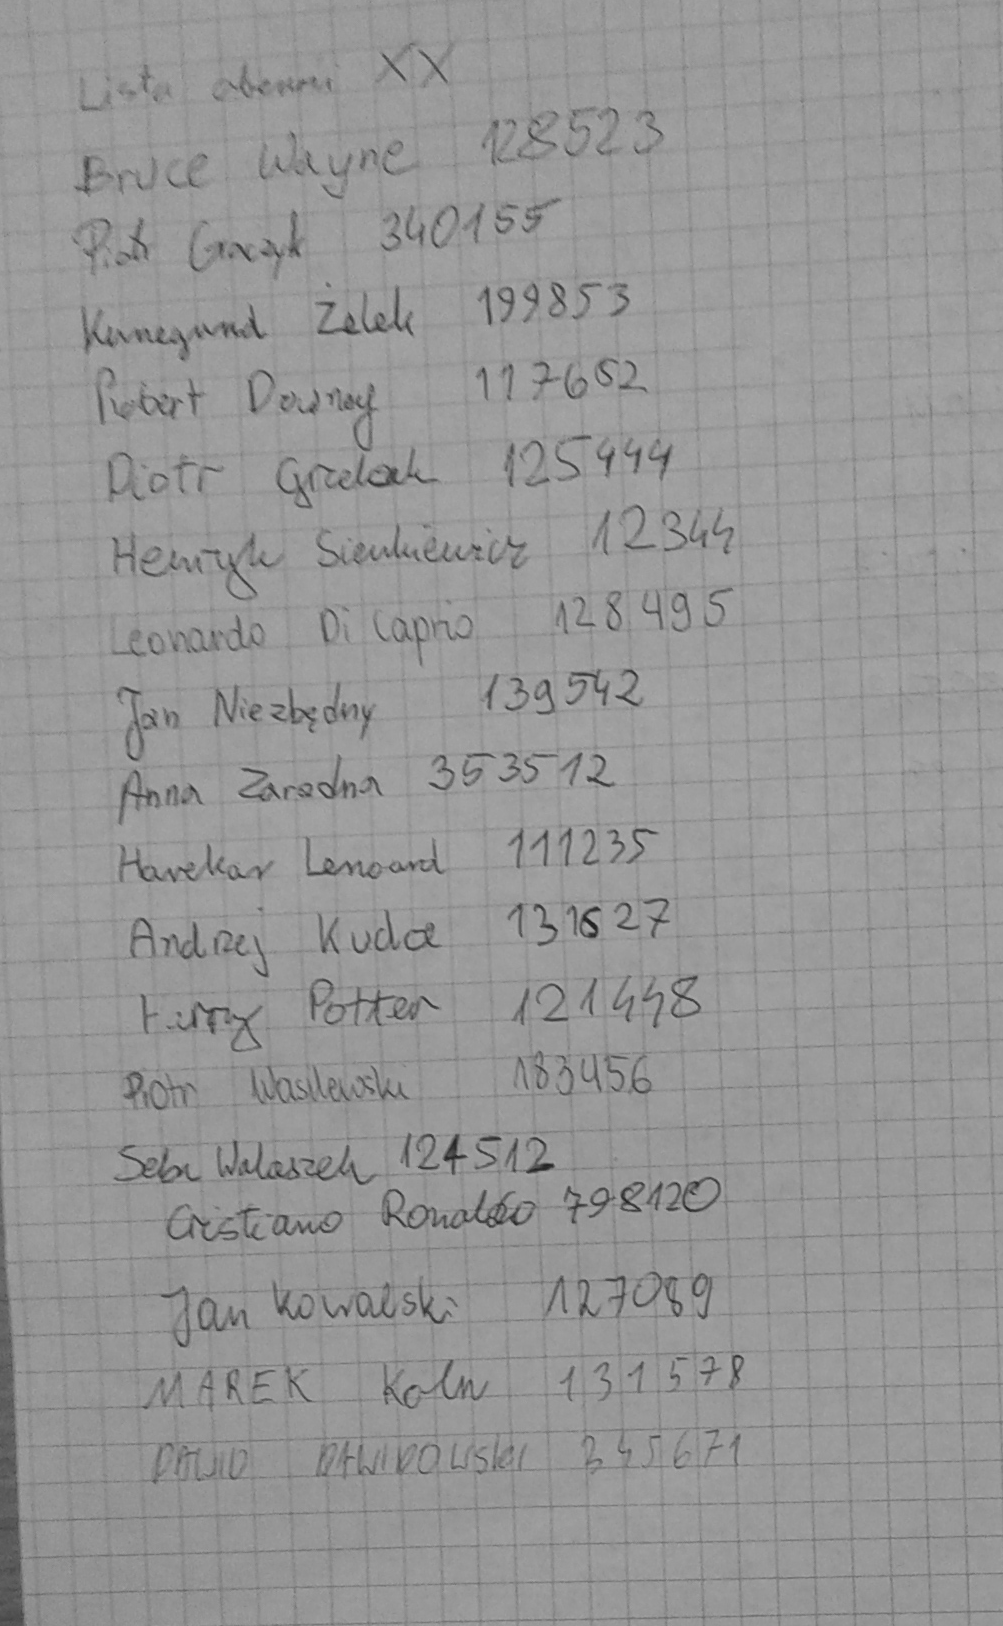 Lista obecności XX
Bruce Wayne 128523
Piotr Graczyk 340155
Kunegund Żelek 199853
Robert Downey 117652
Piotr Grzelak 125444
Henryk Sienkiewicz 12344
Leonardo Di Caprio 128495
Jan Niezbędny 139542
Anna Zaradna 353512
Harekar Lenoard 111235
Andrzej Kuda 131627
Harry Potter 121448
Piotr Wasilewski 183456
Seba Walaszek 124512
Cristiano Ronaldo 798120
Jan Kowalski 127089
MAREK Koln 131578
DAWID DAWIDOWSKI 345671